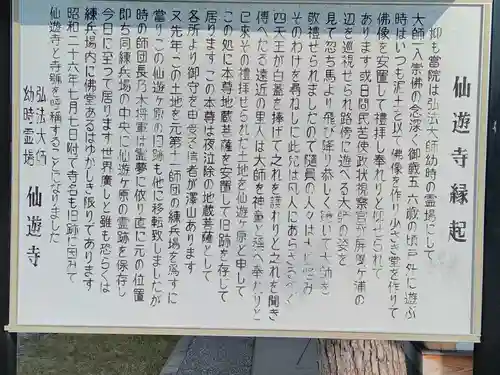 仙遊寺縁起
抑も當院は弘法大師幼時の霊場にして
大師は崇佛の念深く御歳五六歳の頃戸外に遊ぶ
時はいつも泥土を以て佛像を作り小さき堂を作りて
佛像を安置して禮拝し奉れりと伝せられて
あります或日問民苦使政状視察官が屏風ヶ浦の
辺を巡視せられ路傍に遊べる大師の姿を
見て忽ち馬より飛び降り恭しく跪いて大師を
敬禮せられましたので隨員の人々は
そのわけを尋ねしに此児は凡人にあらざるべく
四天王が白蓋を捧げて之れを護れりと之れを聞き
傳へたる遠近の里人は大師を神童と稱へ奉れりと
已來その禮拝せられた土地を仙遊ヶ原と申して
この処に本尊地蔵菩薩を安置して旧跡を存して
居ります この本尊は夜泣除の地蔵菩薩として
各所より御守を申受る信者が澤山あります
又先年この土地を元第十一師団の練兵場を為すに
當りこの仙遊ヶ原の旧跡も他に移転致しましたが
時の師団長乃木将軍は霊夢に依り直に元の位置
即ち同練兵場の中央に仙遊ヶ原の霊跡を保存し
今日に至って居ります世界廣しと雖も恐らくは
練兵場内に佛堂あるはゆかしき限りであります
昭和二十六年七月七日附で寺名も旧跡に因みて
仙遊寺と寺號を呼稱することになりました
弘法大師
幼時霊場
仙遊寺